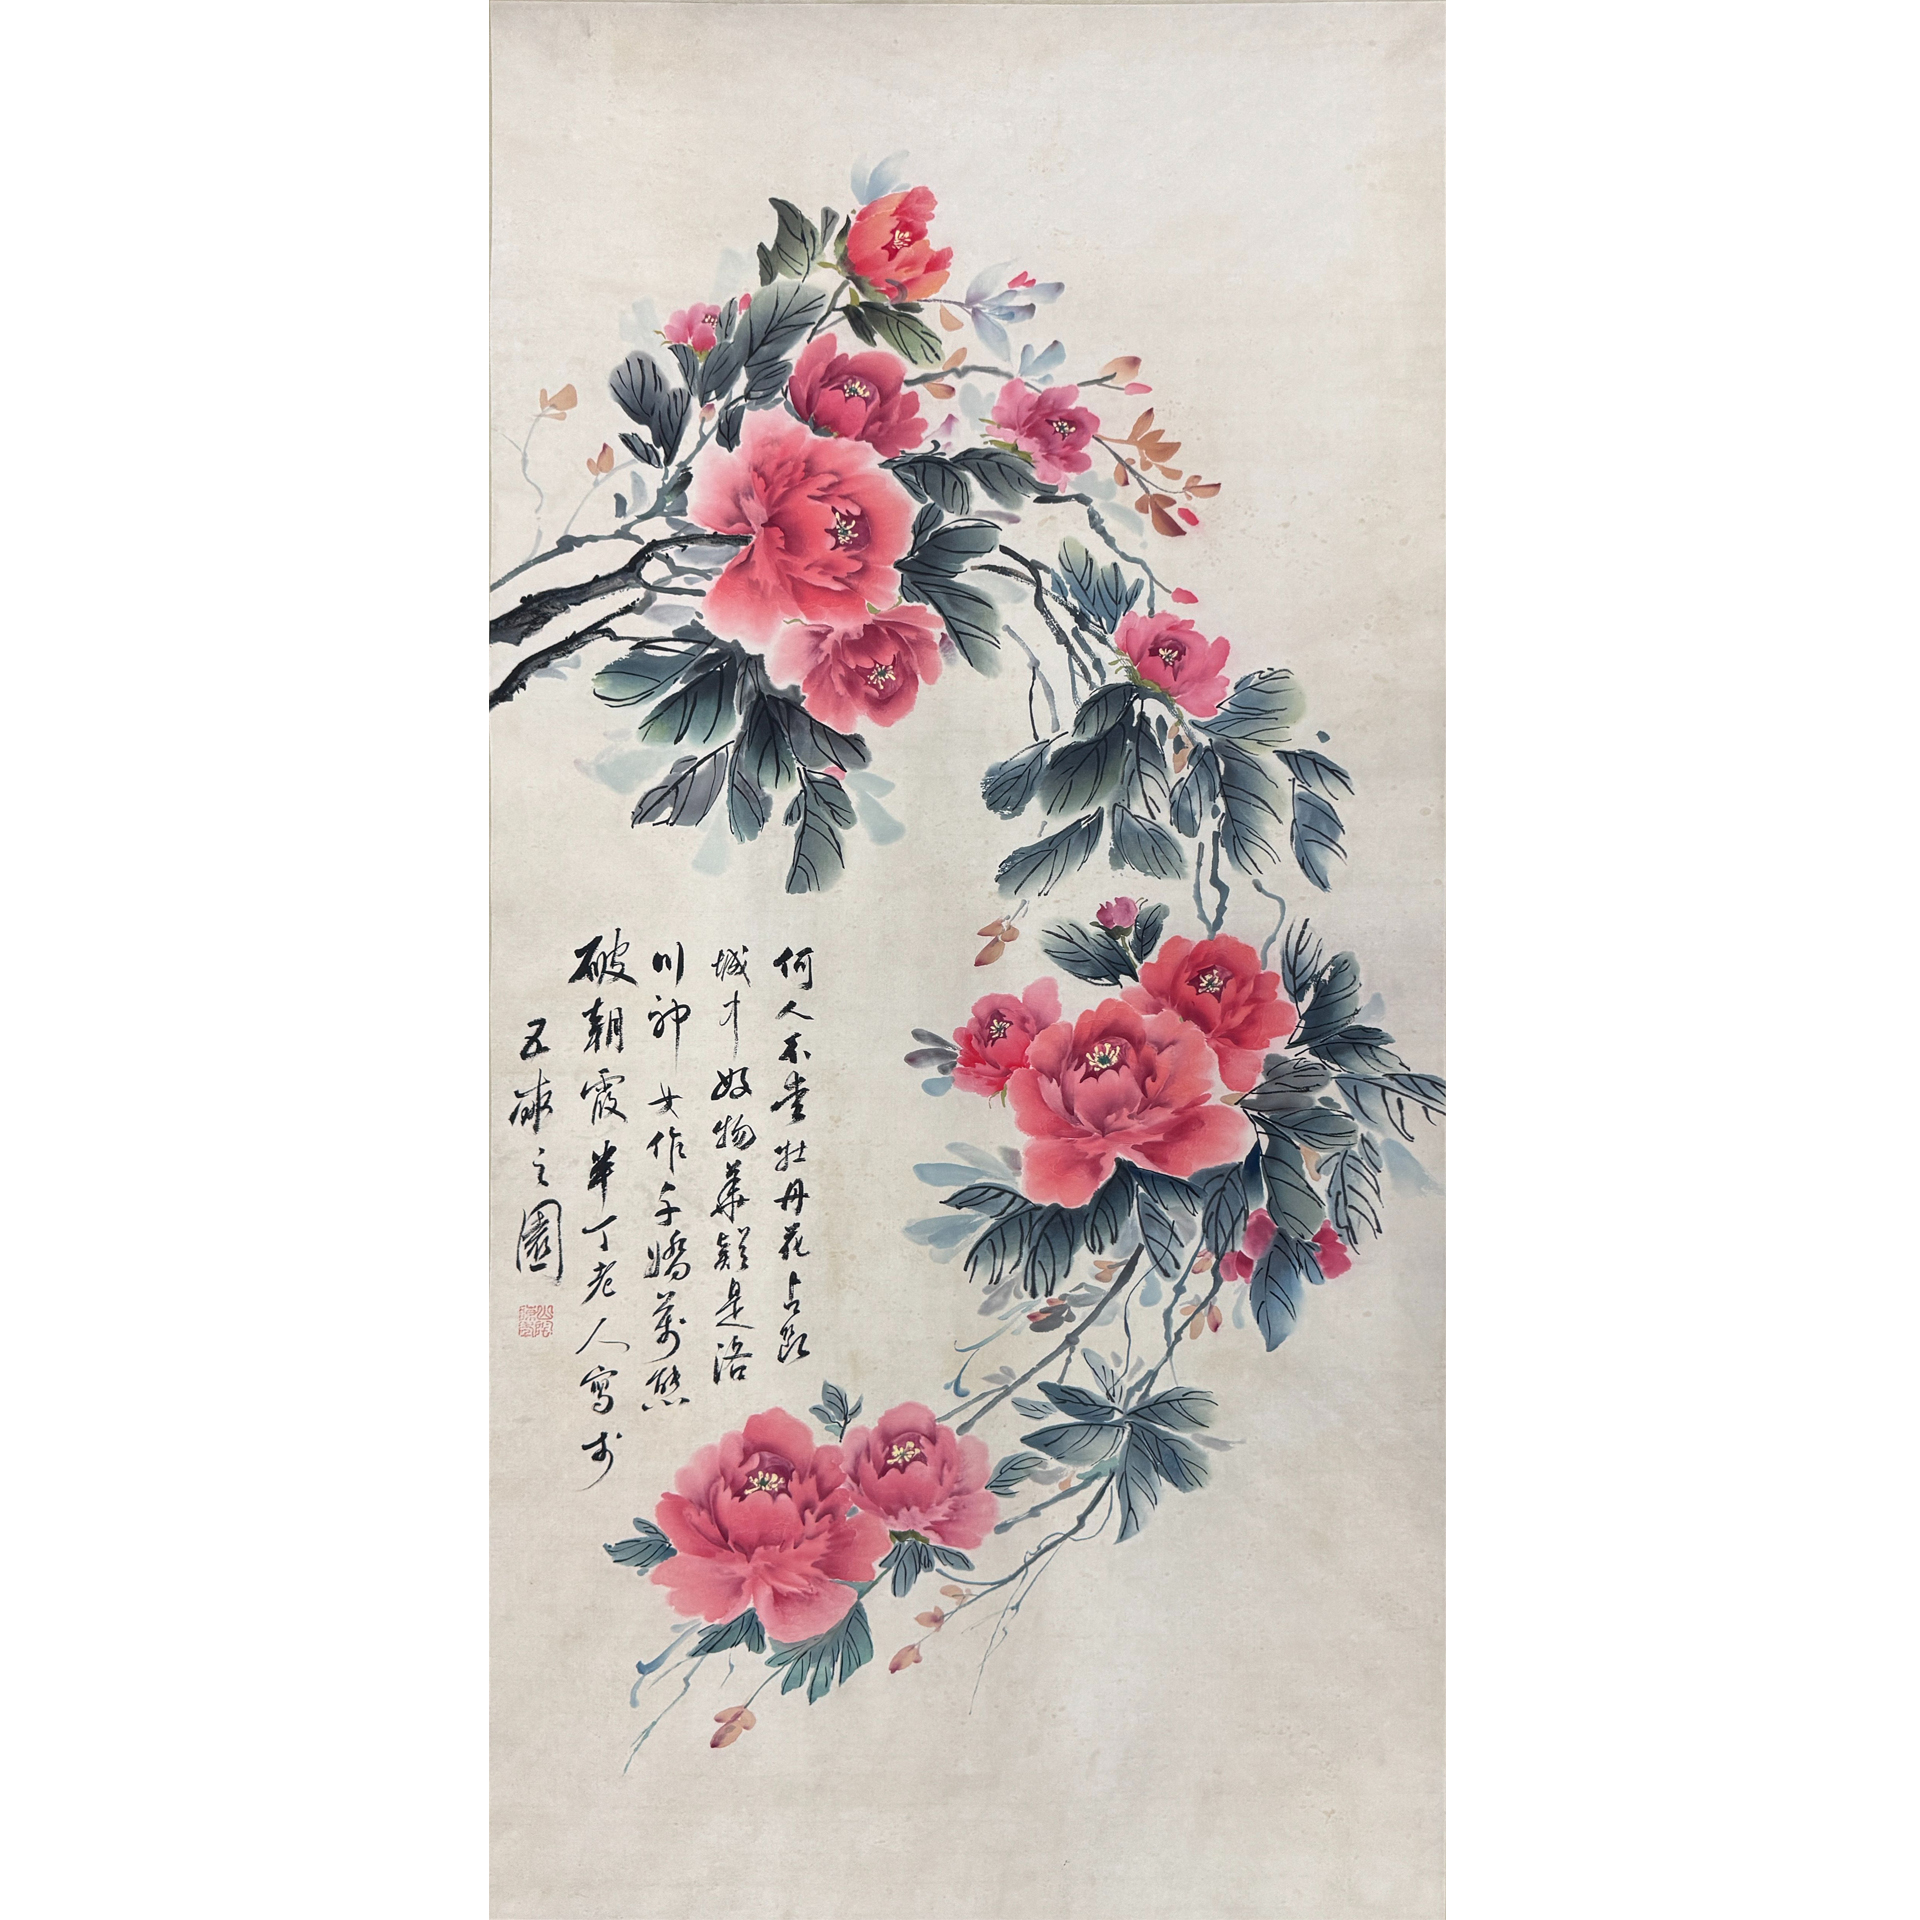 何人不愛牡丹花占斷
城中好物華疑是洛
川神女作千嬌萬態
破朝霞半丁老人寫於
五畝之園
山陰陳年